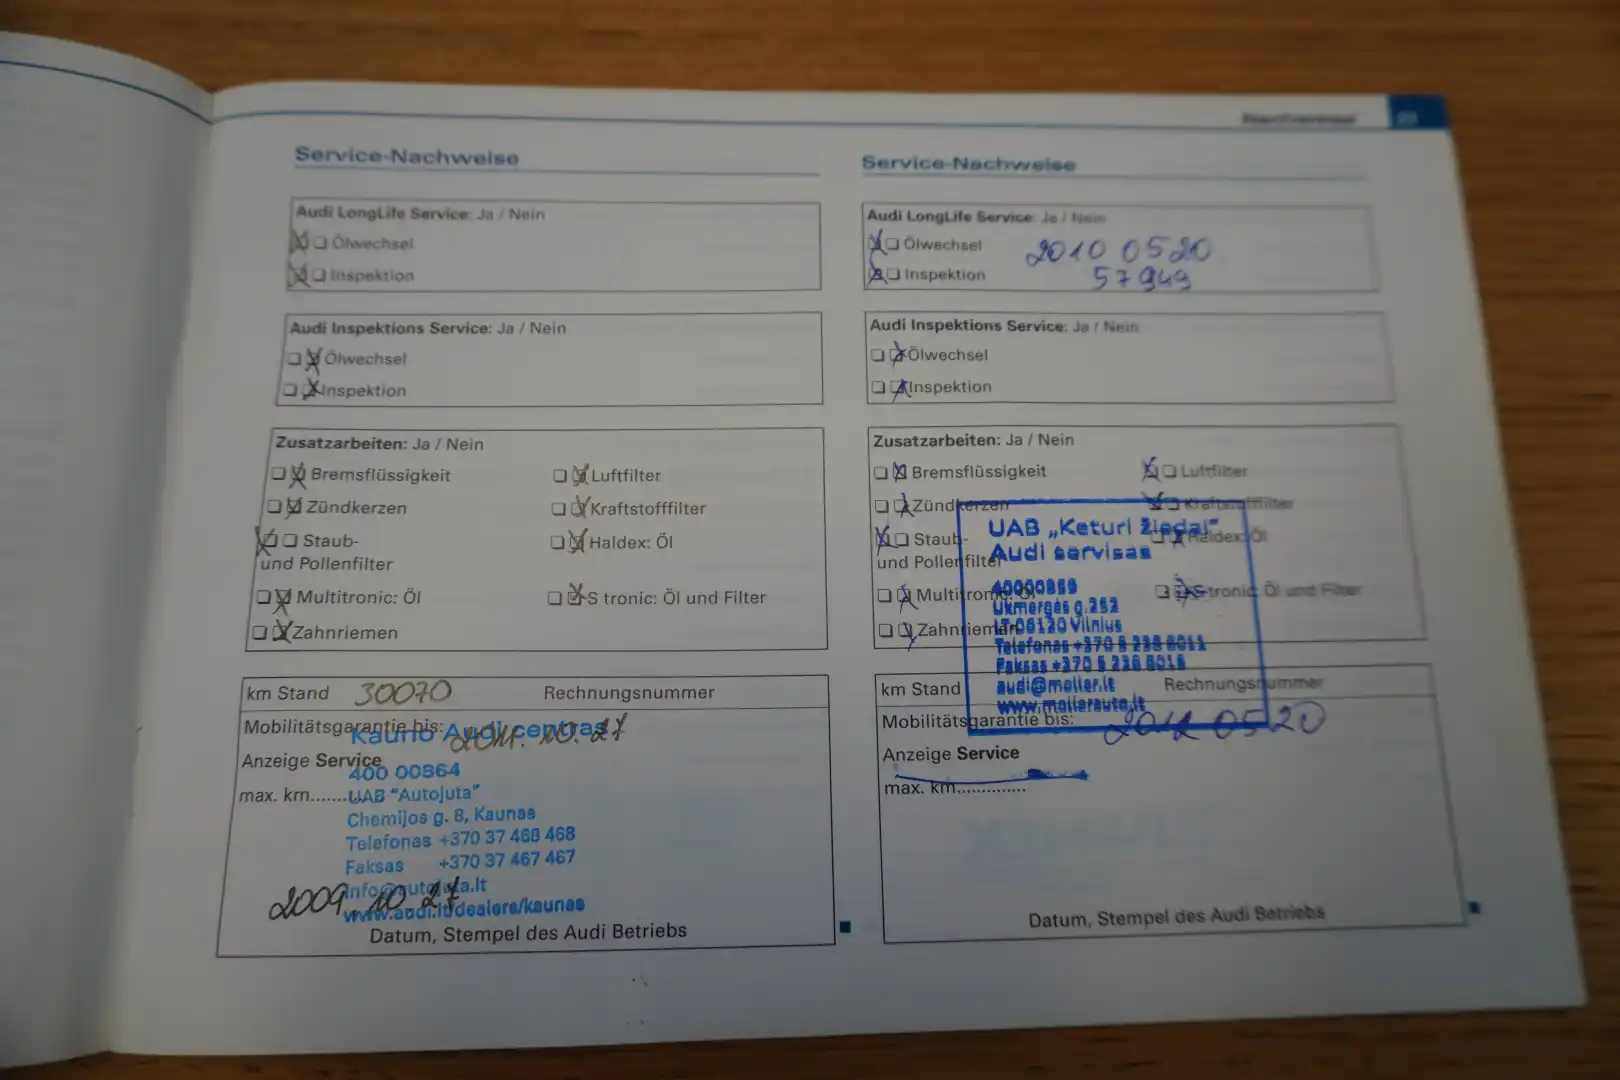 Service-Nachweise
Audi LongLife Service: Ja / Nein
Ölwechsel
Inspektion
Audi Inspektions Service: Ja / Nein
Ölwechsel
Inspektion
Zusatzarbeiten: Ja / Nein
Bremsflüssigkeit Luftfilter
Zündkerzen Kraftstofffilter
Staub- Haldex: Öl
und Pollenfilter
Multitronic: Öl S tronic: Öl und Filter
Zahnriemen
km Stand 30070 Rechnungsnummer
Mobilitätsgarantie bis: 2011. 10. 27
Kauno Audi centras
Anzeige Service
400 00864
max. km.......
UAB "Autojuta"
Chemijos g. 8, Kaunas
Telefonas +370 37 468 468
Faksas +370 37 467 467
info@autojuta.lt
2009. 10 27
www.audi.lt/dealers/kaunas
Datum, Stempel des Audi Betriebs
Service-Nachweise
Audi LongLife Service: Ja / Nein
Ölwechsel 2010 05 20
Inspektion 57949
Audi Inspektions Service: Ja / Nein
Ölwechsel
Inspektion
Zusatzarbeiten: Ja / Nein
Bremsflüssigkeit Luftfilter
Zündkerzen Kraftstofffilter
Staub- Haldex: Öl
und Pollenfilter
Multitronic: Öl S tronic: Öl und Filter
Zahnriemen
UAB „Keturi žiedai"
Audi servisas
40000859
Ukmergės g.252
LT-06120 Vilnius
Telefonas +370 5 236 8011
Faksas +370 5 236 8015
audi@moller.lt
www.mollerauto.lt
km Stand Rechnungsnummer
Mobilitätsgarantie bis: 2012 05 20
Anzeige Service
max. km..............
Datum, Stempel des Audi Betriebs